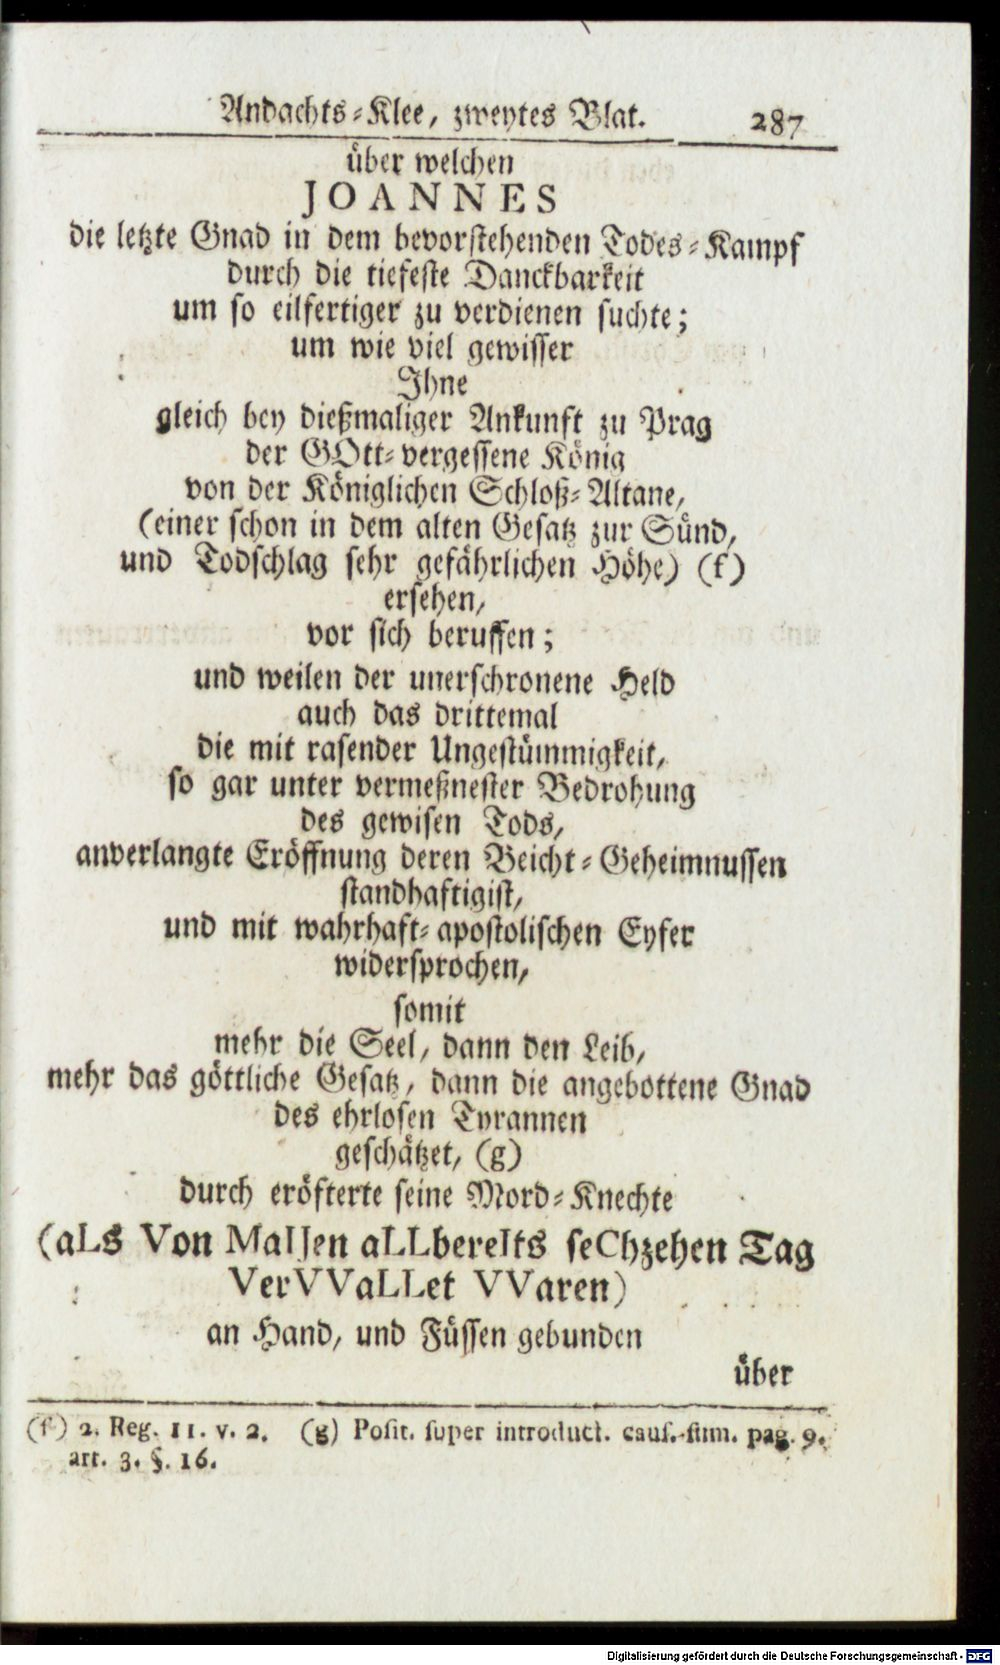 Andachts-Klee, zweytes Blat. 287
über welchen
JOANNES
die letzte Gnad in dem bevorstehenden Todes-Kampf
durch die tiefeste Danckbarkeit
um so eilfertiger zu verdienen suchte;
um wie viel gewisser
Ihne
gleich bey dießmaliger Ankunft zu Prag
der GOtt-vergessene König
von der Königlichen Schloß-Altane,
(einer schon in dem alten Gesatz zur Sünd,
und Todschlag sehr gefährlichen Höhe) (f)
ersehen,
vor sich beruffen;
und weilen der unerschronene Held
auch das drittemal
die mit rasender Ungestümmigkeit,
so gar unter vermeßnester Bedrohung
des gewisen Tods,
anverlangte Eröffnung deren Beicht-Geheimnussen
standhaftigist,
und mit wahrhaft-apostolischen Eyfer
widersprochen,
somit
mehr die Seel, dann den Leib,
mehr das göttliche Gesatz, dann die angebottene Gnad
des ehrlosen Tyrannen
geschätzet, (g)
durch eröfterte seine Mord-Knechte
(aLs Von MaIJen aLLbereIts seChzehen Tag
VerVVaLLet VVaren)
an Hand, und Füssen gebunden
über
(f) 2. Reg. 11. v. 2. (g) Posit. super introduct. caus. sum. pag. 9.
art. 3. §. 16.
Digitalisierung gefördert durch die Deutsche Forschungsgemeinschaft - DFG